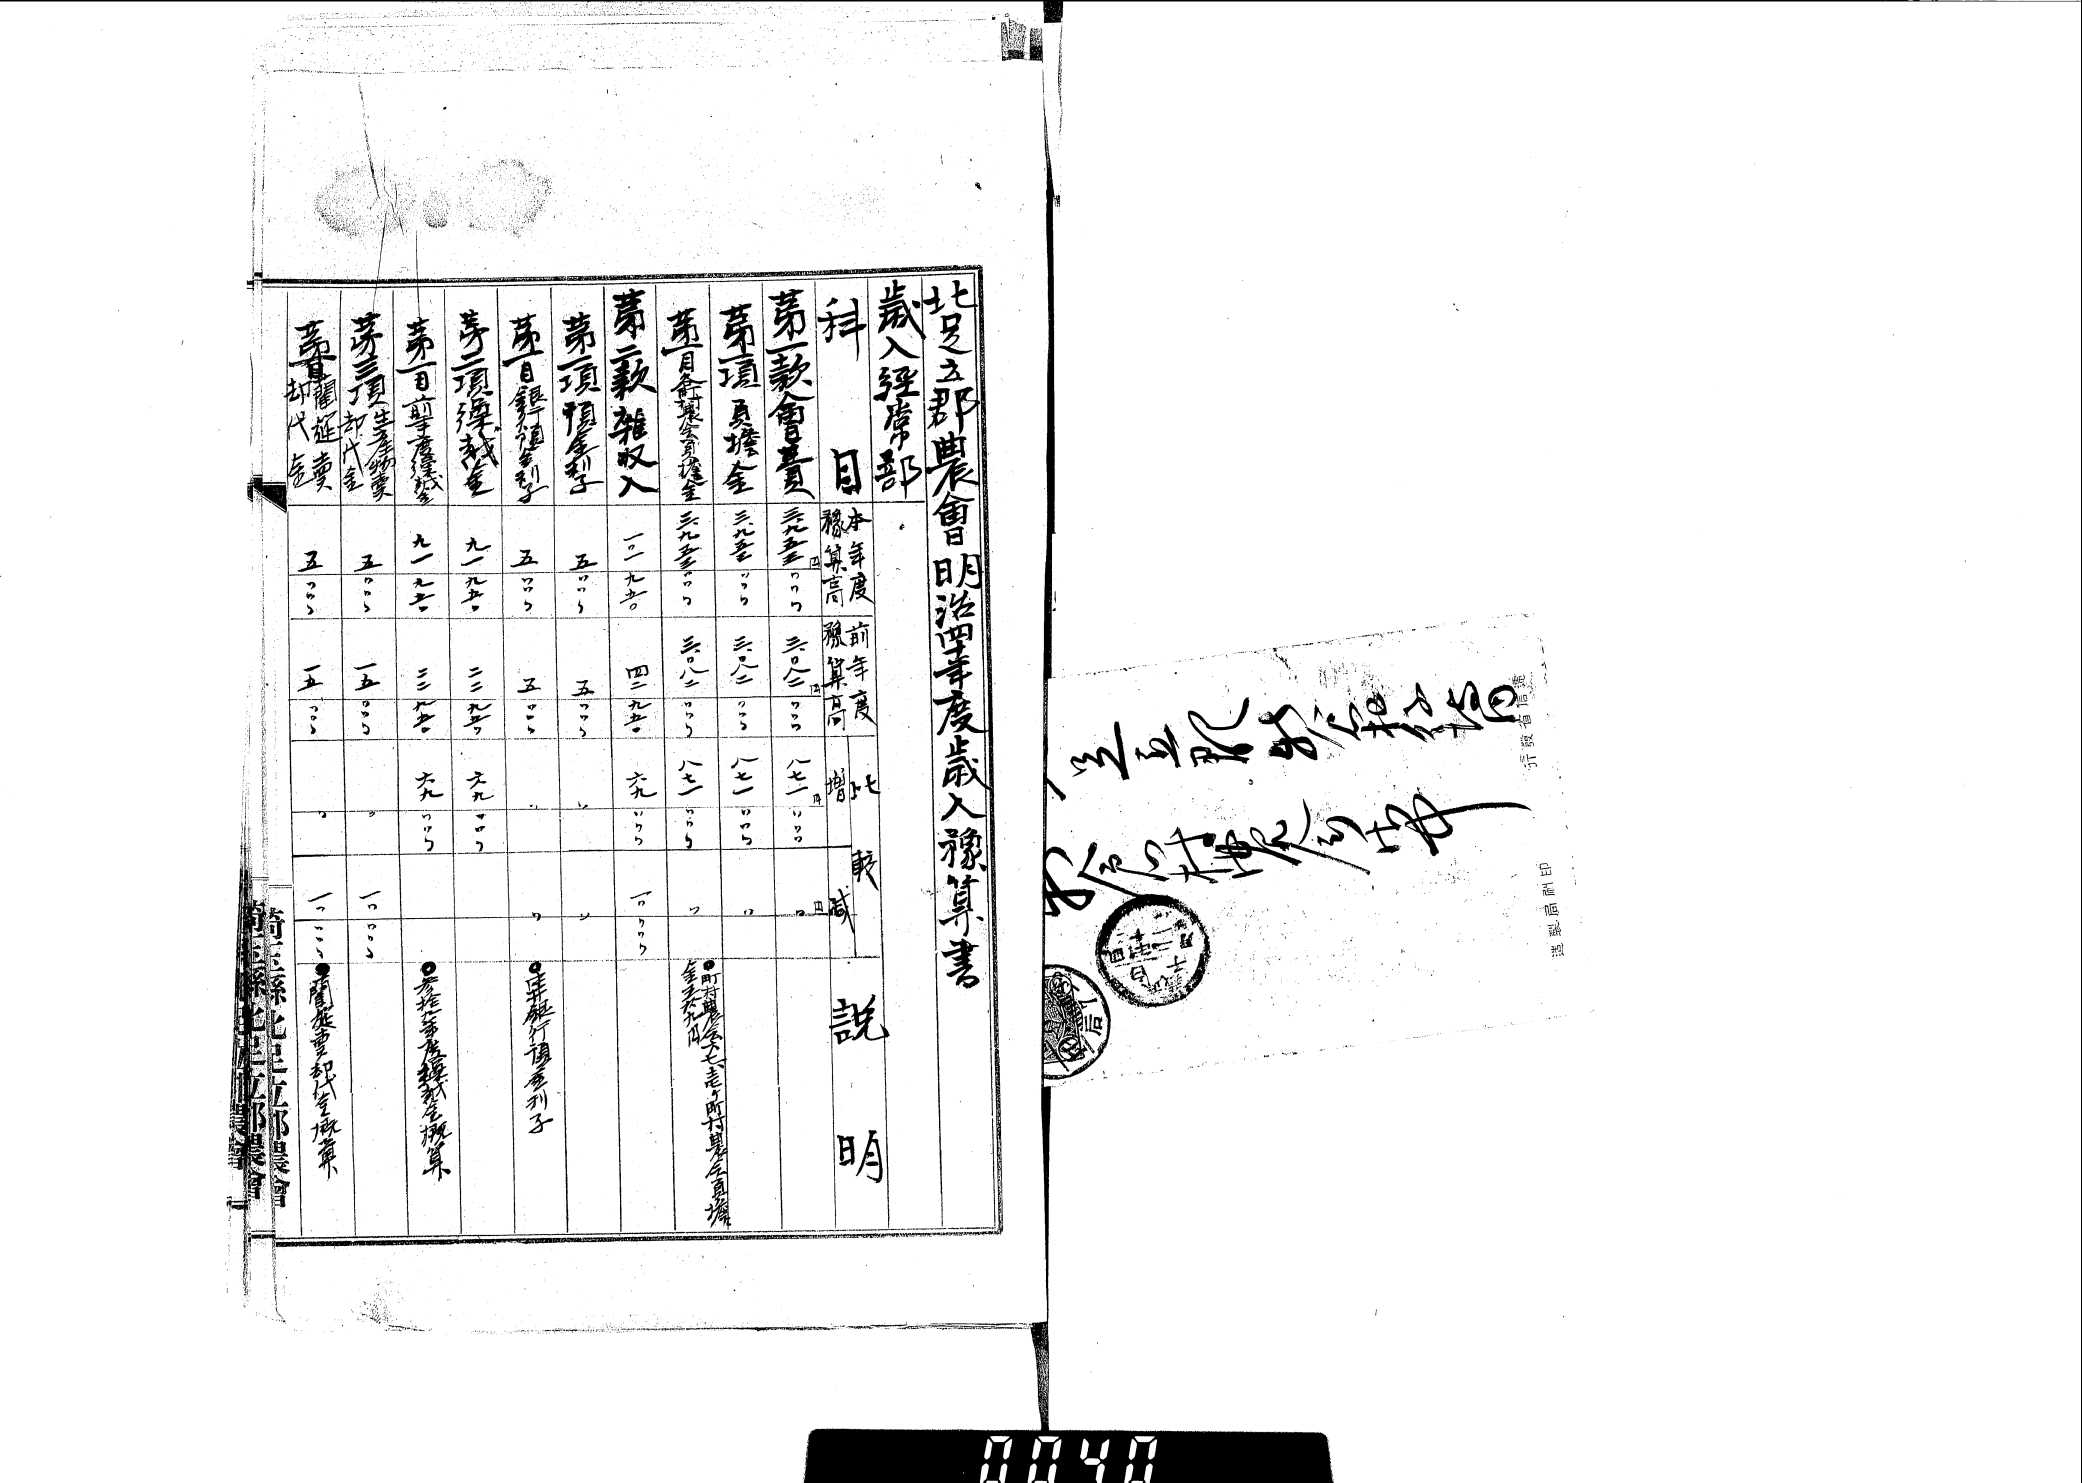 北足立郡農會明治四十年度歳入豫算書
歳入經常部
科目
本年度豫算高
前年度豫算高
比較
増
減
説明
第一款會費 三、九五三円 〃〃〃 三、〇八二円 〃〃〃 八七一円 〃〃〃 〃円
第一項負擔金 三、九五三 〃〃〃 三、〇八二 〃〃〃 八七一 〃〃〃 〃
第一目町村農会負擔金 三、九五三 〃〃〃 三、〇八二 〃〃〃 八七一 〃〃〃 〃
●町村農会六七壱ヶ町村農会負擔
第二款雑収入 一〇一 九五〇 四二 九五〇 六九 〃〃〃 一〇 〃〃〃
第一項預金利子 五 〃〃〃 五 〃〃〃 〃 〃
第一目銀行預金利子 五 〃〃〃 五 〃〃〃 〃 〃
銀行預金利子
第二項繰越金 九一 九五〇 二二 九五〇 六九 〃〃〃
第一目前年度繰越金 九一 九五〇 二二 九五〇 六九 〃〃〃
参拾九年度繰越金概算
第三項生産物賣却代金 五 〃〃〃 一五 〃〃〃 〃 一〇 〃〃〃
第一目藺莚賣却代金 五 〃〃〃 一五 〃〃〃 〃 一〇 〃〃〃
●藺莚賣却代金概算
埼玉縣北足立郡農會
埼玉縣北足立郡農會
遞信省發行
印刷局製造
0040